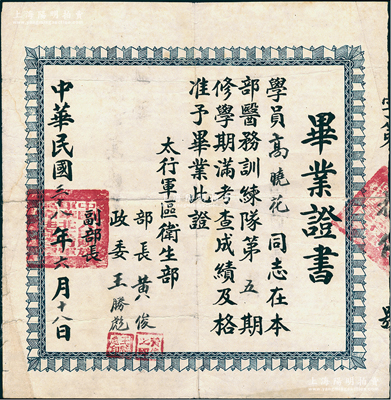 畢業證書
學員高曉花同志在本
部醫務訓練隊第五期
修學期滿考查成績及格
准予畢業此證
太行軍區衛生部
部長黃俊
副部長
政委王勝彪
中華民國三十八年六月十八日
號